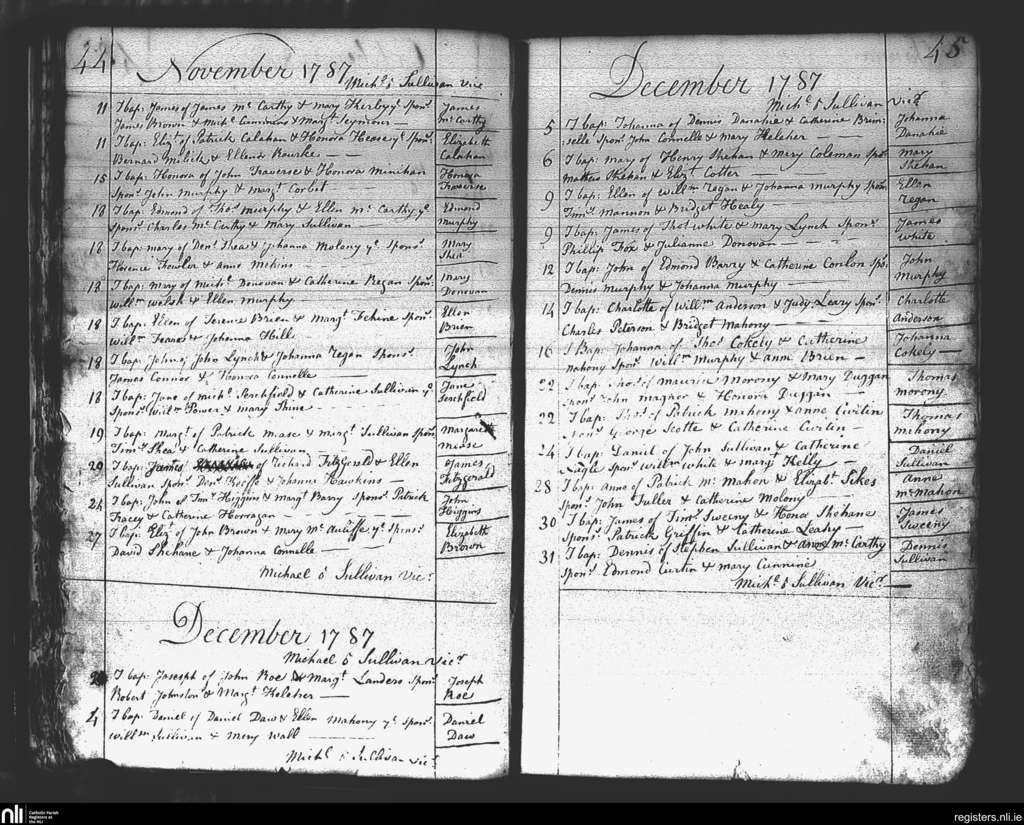 44
November 1787
Mich:l ó Sullivan Vic:r
11 I bap: James of James Mc Carthy & Mary Kerby ye Spon:s James
James Brown & Mich:l Cummins & Marg:t Seymour — Mc Carthy
11 I bap: Eliz:t of Patrick Calahan & Honora Hease ye Spon:s Elizabeth
Bernard & Ellenr Rourke — Calahan
15 I bap: Honora of John Traverse & Honora Minihan Honora
Spon:s John Murphy & Marg:t Corbit Traverse
18 I bap: Edmond of Tho:s Murphy & Ellen Mc Carthy ye Edmond
Spon:s Charles Mc Carthy & Mary Sullivan — Murphy
18 I bap: Mary of Den:s Shea & Johanna Molony ye Spon:s Mary
Florence Fowler & Anne Shea
18 I bap: Mary of Mich:l Donovan & Catherine Regan Spon:s Mary
Will:m Welsh & Ellen Murphy Donovan
18 I bap: Ellen of Terence Brien & Marg:t Spon:s Ellen
Will:m & Johanna Brien
18 I bap: John of John Lynch & Johanna Regan Spon:s John
James Connor & Honora Connelle — Lynch
18 I bap: Jane of Mich:l & Catherine Sullivan ye Jane
Spon:s Will:m Power & Mary
19 I bap: Marg:t of Patrick Mease & Marg:t Sullivan Spon:s Margaret
Tim:s Shea & Catherine Sullivan Mease
20 I bap: James of Richard FitzGerald & Ellen James
Sullivan Spon:s Den:s Keeffe & Johanna Hawkins — Fitzgerald
24 I bap: John of Tim:s Higgins & Marg:t Barry Spon:s Patrick John
Tracey & Catherine Horragan — Higgins
27 I bap: Eliz:t of John Brown & Mary Mc Auliffe ye Spon:s Elizabeth
David Shehane & Johanna Connelle — Brown
Michael ó Sullivan Vic:r
December 1787
Michael ó Sullivan Vic:r
I bap: Joseph of John Roe & Marg:t Landers Spon:s Joseph
Robert Johnston & Marg:t Keleher — Roe
4 I bap: Daniel of Daniel Daw & Ellen Mahony ye Spon:s Daniel
Will:m Sullivan & Mary Wall — Daw
Mich:l ó Sullivan Vic:r
45
December 1787
Mich:l ó Sullivan Vic:r
5 I bap: Johanna of Dennis Danahie & Catherine Brin= Johanna
selle Spon:s John Connelle & Mary Keleher — Danahie
6 I bap: Mary of Henry Shehan & Mary Coleman Spo:s Mary
Mathew Shehan & Eliz:t Cotter — Shehan
9 I bap: Ellen of Will:m Regan & Johanna Murphy Spon:s Ellen
Tim:s Mannon & Bridget Healy — Regan
9 I bap: James of Tho:s White & Mary Lynch Spon:s James
Phillip Fox & Julianne Donovan — White
12 I bap: John of Edmond Barry & Catherine Conlon Spo:s John
Dennis Murphy & Johanna Murphy — Murphy
14 I bap: Charlotte of Will:m Anderson & Judy Leary Spon:s Charlotte
Charles Peterson & Bridget Mahony — Anderson
16 I Bap: Johanna of Tho:s Cokely & Catherine Johanna
Mahony Spon:s Will:m Murphy & Anne Brien — Cokely —
22 I bap: Tho:s of Maurice Morony & Mary Duggan Thomas
Spon:s John Magner & Honora Duggan — Morony
22 I bap: Tho:s of Patrick Mehony & Anne Curtin Thomas
Spon:s George Scotte & Catherine Curtin — Mehony
24 I bap: Daniel of John Sullivan & Catherine Daniel
Nagle Spon:s Will:m White & Marg:t Kelly — Sullivan
28 I bap: Anne of Patrick Mc Mahon & Elizab:t Sikes Anne
Spon:s John Fuller & Catherine Molony — Mc Mahon
30 I bap: James of Tim:s Sweeny & Hona Shehane James
Spon:s Patrick Griffin & Catherine Leary — Sweeny
31 I bap: Dennis of Stephen Sullivan & Anne Mc Carthy Dennis
Spon:s Edmond Curtin & Mary Cunnine Sullivan
Mich:l ó Sullivan Vic:r —
nli Catholic Parish
Registers at
the NLI
registers.nli.ie